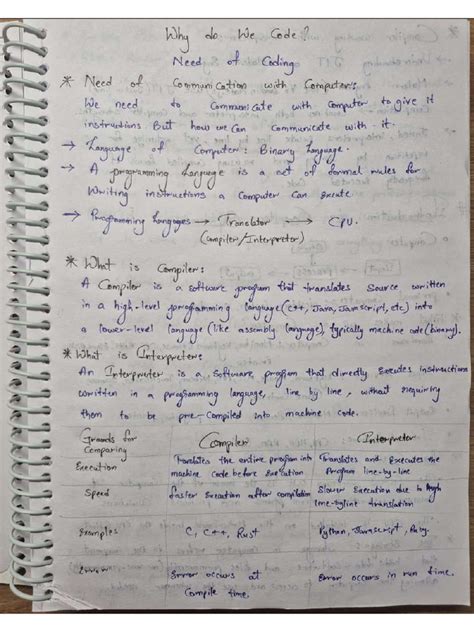 Why do We Code?
Need of Coding
* Need of Communication with Computer:
We need to Communicate with Computer to give it
instructions But how we Can Communicate with it.
→ Language of Computer: Binary Language.
→ A programming Language is a set of formal rules for
Writing instructions a Computer Can execute
→ Programming Languages → Translator → CPU.
(Compiler/Interpreter)
* What is Compiler:
A Compiler is a software program that translates Source written
in a high-level programming language (C++, Java, Javascript, etc) into
a lower-level language (like assembly language), typically machine code (binary).
* What is Interpreter:
An Interpreter is a software program that directly Executes instructions
written in a programming language, line by line, without requiring
them to be pre-Compiled into machine code.
Grounds for Comparing Compiler Interpreter
Execution Translates the entire program into machine Code before execution Translates and Executes the Program line-by-line
Speed faster Execution after compilation Slower Execution due to line-by-line translation
Examples C, C++, Rust Python, Javascript, Ruby.
Errors Error occurs at Compile time. Error occurs in run time.